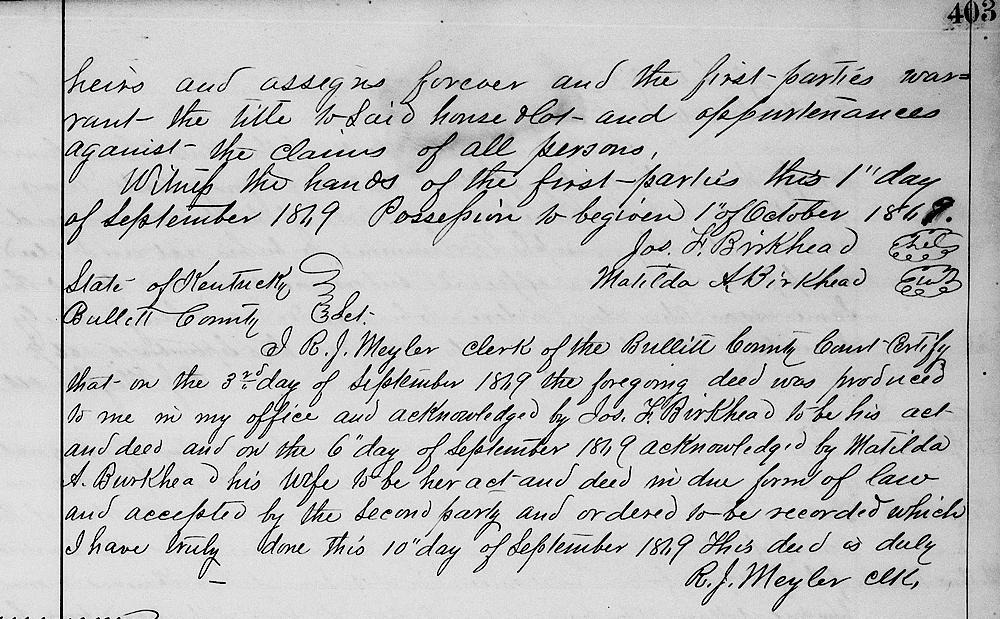 403
heirs and assigns forever and the first parties war=
rant the title to said house & lot and appurtenances
against the claims of all persons,
Witness the hands of the first parties this 1" day
of September 1869 Possession to be given 1" of October 1869.
Jos. F. Birkhead
State of Kentucky Matilda A Birkhead
Bullett County Sct.
I R. J. Meyler clerk of the Bullitt County Court Certify
that on the 3rd day of September 1869 the foregoing deed was produced
to me in my office and acknowledged by Jos. F. Birkhead to be his act
and deed and on the 6" day of September 1869 acknowledged by Matilda
A. Burkhead his wife to be her act and deed in due form of law
and accepted by the second party and ordered to be recorded which
I have truly done this 10" day of September 1869 This deed is duly
R. J. Meyler clk,